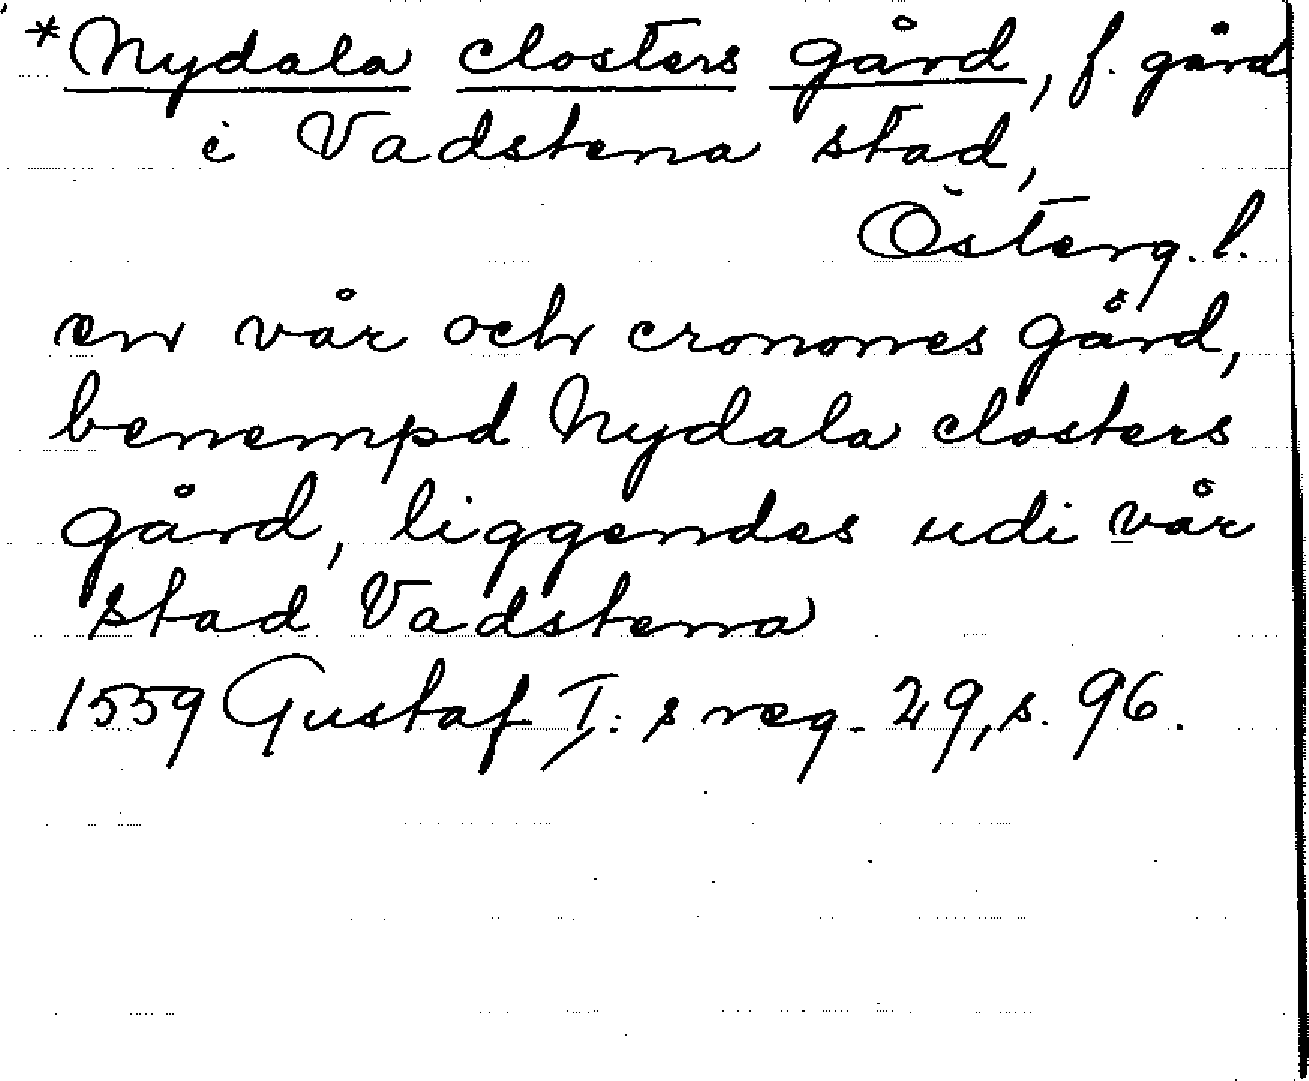 *Nydala closters gård, f. gård
i Vadstena stad,
Österg. l.
en vår och cronones gård,
benempd Nydala closters
gård, liggendes udi vår
stad Vadstena
1559 Gustaf I:s reg. 29, s. 96.